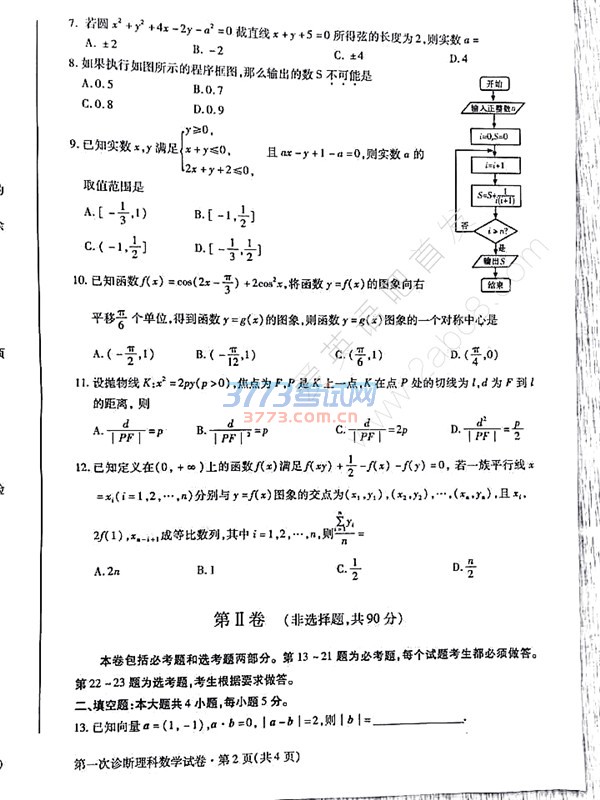 7. 若圆 x²+y²+4x-2y-a²=0 截直线 x+y+5=0 所得弦的长度为2,则实数 a=
A. ±2 B. -2 C. ±4 D.4
8. 如果执行如图所示的程序框图,那么输出的数 S 不可能是
A.0.5 B.0.7
C.0.8 D.0.9
开始
输入正整数n
i=0,S=0
i=i+1
S=S+1/i(i+1)
否
i≥n?
是
输出S
结束
9. 已知实数 x,y 满足{y≥0, x+y≤0, 2x+y+2≤0, 且 ax-y+1-a=0,则实数 a 的
取值范围是
A.[-1/3,1) B.[-1,1/2]
C.(-1,1/2] D.[-1/3,1/2]
10. 已知函数 f(x)=cos(2x-π/3)+2cos²x,将函数 y=f(x)的图象向右
平移π/6个单位,得到函数 y=g(x)的图象,则函数 y=g(x)图象的一个对称中心是
A.(-π/2,1) B.(-π/12,1) C.(π/6,1) D.(π/4,0)
11. 设抛物线 K:x²=2py(p>0),焦点为 F,P 是 K 上一点,K 在点 P 处的切线为 l,d 为 F 到 l
的距离, 则
A. d/|PF|=p B. d/|PF|²=p C. d/|PF|=2p D. d²/|PF|=p/2
3773考试网
3773.com.cn
12. 已知定义在(0,+∞)上的函数 f(x)满足 f(xy)+1/2-f(x)-f(y)=0, 若一族平行线 x
=xᵢ(i=1,2,…,n)分别与 y=f(x)图象的交点为(x₁,y₁),(x₂,y₂),…,(xₙ,yₙ),且 xᵢ,
2f(1),xₙ₋ᵢ₊₁成等比数列,其中 i=1,2,…,n,则 ∑ⁿᵢ₌₁yᵢ/n=
A.2n B.1 C.1/2 D.n/2
第Ⅱ卷 (非选择题,共90分)
本卷包括必考题和选考题两部分。第13~21题为必考题,每个试题考生都必须做答。
第22~23题为选考题,考生根据要求做答。
二、填空题:本大题共4小题,每小题5分。
13. 已知向量 a=(1,-1),a·b=0,|a-b|=2,则|b|=________.
第一次诊断理科数学试卷·第2页(共4页)